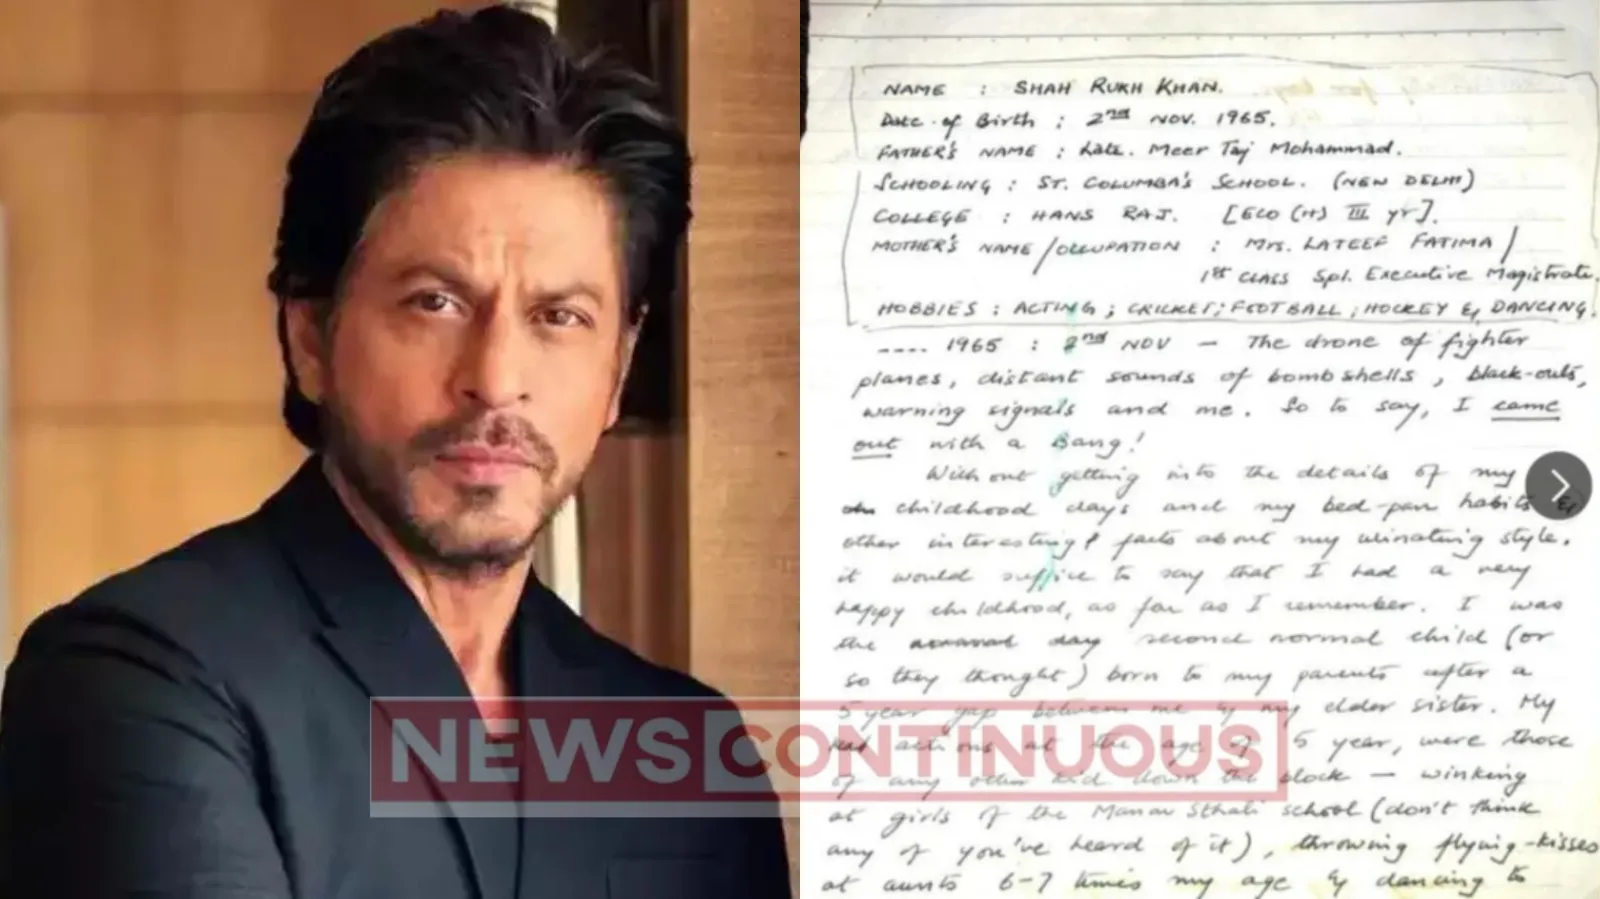 NAME : SHAH RUKH KHAN.
Date of Birth : 2nd NOV. 1965.
FATHER'S NAME : Late. Meer Taj Mohammad.
SCHOOLING : ST. COLUMBA'S SCHOOL. (NEW DELHI)
COLLEGE : HANS RAJ. [ECO (H) III yr].
MOTHER'S NAME/OCCUPATION : Mrs. LATEEF FATIMA/
1st CLASS Spl. Executive Magistrate.
HOBBIES : ACTING ; CRICKET; FOOTBALL ; HOCKEY & DANCING.
---- 1965 : 2nd NOV — The drone of fighter
planes, distant sounds of bombshells, black-outs,
warning signals and me. So to say, I came
out with a Bang!
Without getting into the details of my
childhood days and my bed-pan habits &
other interesting facts about my urinating style,
it would suffice to say that I had a very
happy childhood, as far as I remember. I was
the second normal child (or
so they thought) born to my parents after a
5 year gap between me & my elder sister. My
actions at the age of 5 year, were those
of any other kid down the block — winking
at girls of the Manav Sthali school (don't think
any of you've heard of it), throwing flying-kisses
at aunts 6-7 times my age & dancing to
NEWS CONTINUOUS